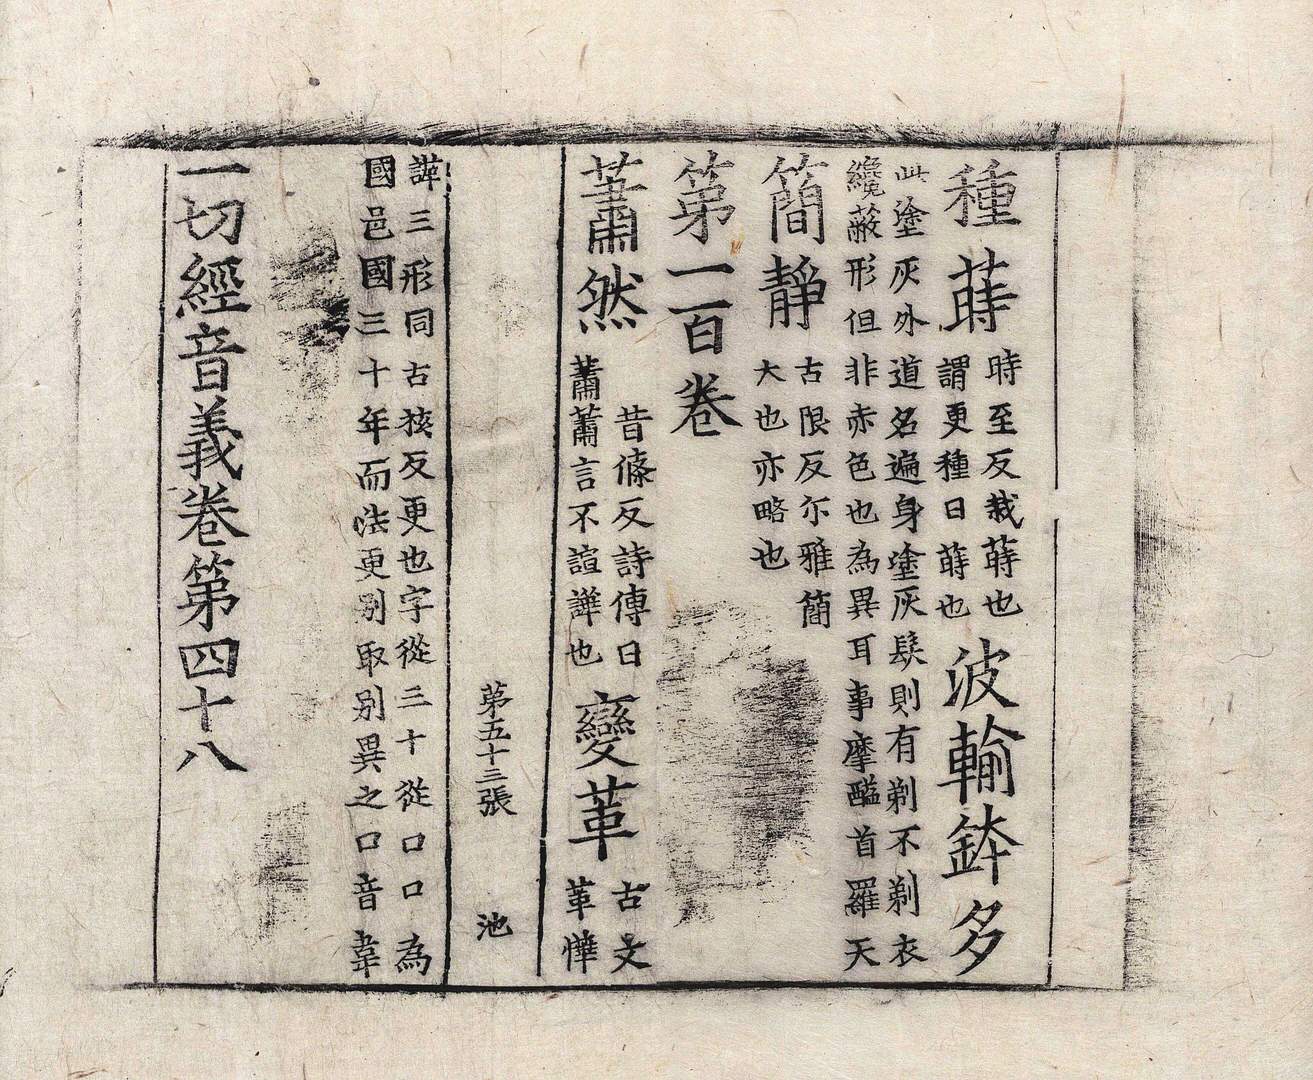 種蒔
時至反栽蒔也
謂更種曰蒔也
波輸鉢多
此塗灰外道名遍身塗灰髮則有剃不剃衣
纔蔽形但非赤色也為異耳事摩醯首羅天
簡靜
古限反尓雅簡
大也亦略也
第一百卷
蕭然
昔條反詩傳曰
蕭蕭言不諠譁也
變革
古文
革愅
諽三形同古核反更也字從三十從口口為
國邑國三十年而法更別取別異之口音韋
第五十三張
池
一切經音義卷第四十八